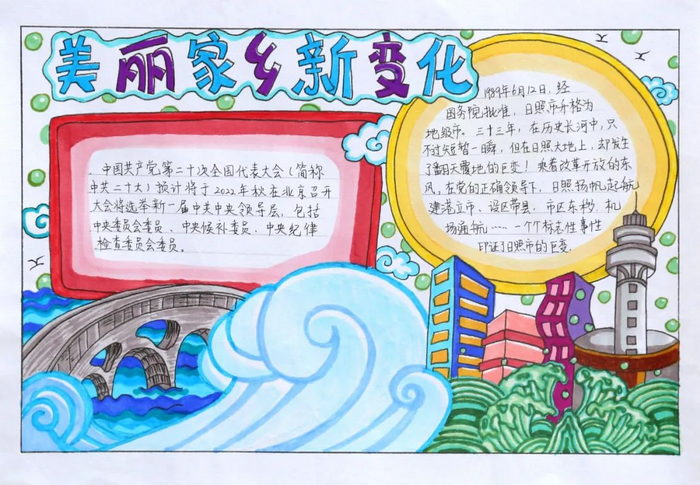 美丽家乡新变化
中国共产党第二十次全国代表大会（简称
中共二十大）预计将于2022年秋在北京召开
大会将选举新一届中共中央领导层，包括
中央委员会委员、中央候补委员、中央纪律
检查委员会委员。
1989年6月12日，经
国务院批准，日照市升格为
地级市。三十三年，在历史长河中，只
不过短暂一瞬，但在日照大地上，却发生
了翻天覆地的巨变！乘着改革开放的东
风，在党的正确领导下，日照扬帆起航
建港立市、设区带县，市区东移，机
场通航……一个个标志性事件
印证了日照市的巨变。